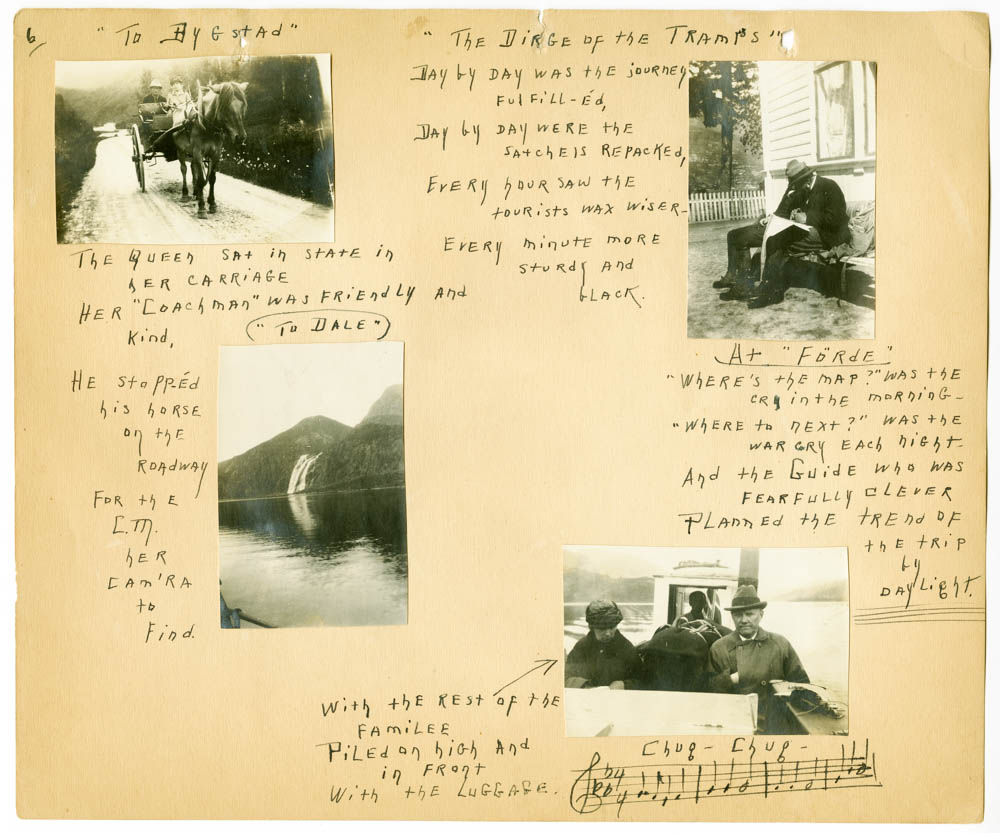 6
"To Bygstad"
The Queen sat in state in
her carriage
Her "Coachman" was friendly and
kind,
He stoppéd
his horse
on the
roadway
For the
C.M.
her
cam'ra
to
find.
("To Dale")
"The Dirge of the Tramps"
Day by day was the journey
fulfill-éd,
Day by day were the
satchels repacked,
Every hour saw the
tourists wax wiser-
Every minute more
sturdy and
black.
At "Förde"
"Where's the map?" was the
cry in the morning-
"Where to next?" was the
war cry each night-
And the Guide who was
fearfully clever
Planned the trend of
the trip
by
daylight.
With the rest of the
familee
Piled on high and
in front
With the luggage.
Chug - Chug -